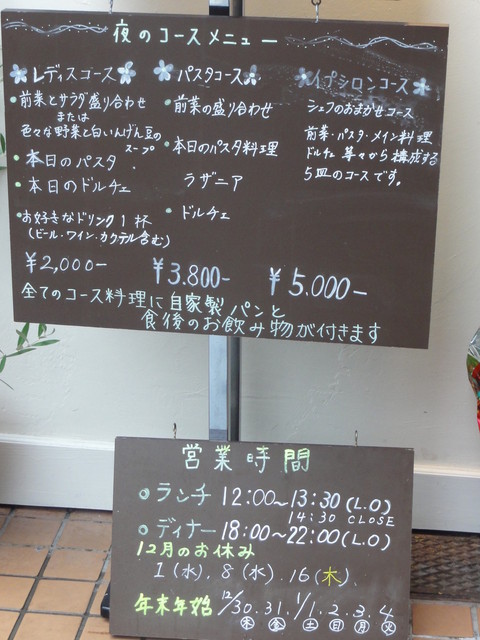 夜のコースメニュー
レディスコース
・前菜とサラダ盛り合わせ
または
色々な野菜と白いんげん豆の
スープ
・本日のパスタ
・本日のドルチェ
・お好きなドリンク1杯
(ビール・ワイン・カクテル含む)
¥2,000-
パスタコース
・前菜の盛り合わせ
・本日のパスタ料理
ラザニア
・ドルチェ
¥3.800-
イプシロンコース
シェフのおまかせコース
前菜・パスタ・メイン料理
ドルチェ等々から構成する
5皿のコースです。
¥5.000-
全てのコース料理に自家製パンと
食後のお飲み物が付きます
営業時間
ランチ 12:00~13:30(L.O)
14:30 CLOSE
ディナー 18:00~22:00(L.O)
12月のお休み
1(水). 8(水). 16(木).
年末年始 12/30.31. 1/1.2.3.4
木 金 土 日 月 火